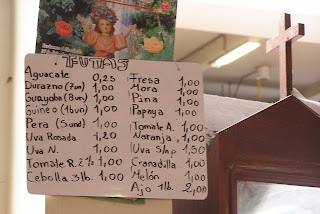 FRUTAS
Aguacate 0,25
Durazno (7un) 1,00
Guayaba (8un) 1,00
Guineo (16un) 1,00
Pera (5und) 1,00
Uva Rosada 1,20
Uva N. 1,00
Tomate R. 2½ 1,00
Cebolla 3lb. 1,00
Fresa 1,00
Mora 1,00
Pina 1,00
Papaya 1,00
Tomate A. 1,00
Naranja 1,00
Uva S/np 1,50
Granadilla 1,00
Melón 1,00
Ajo 1lb. 2,00